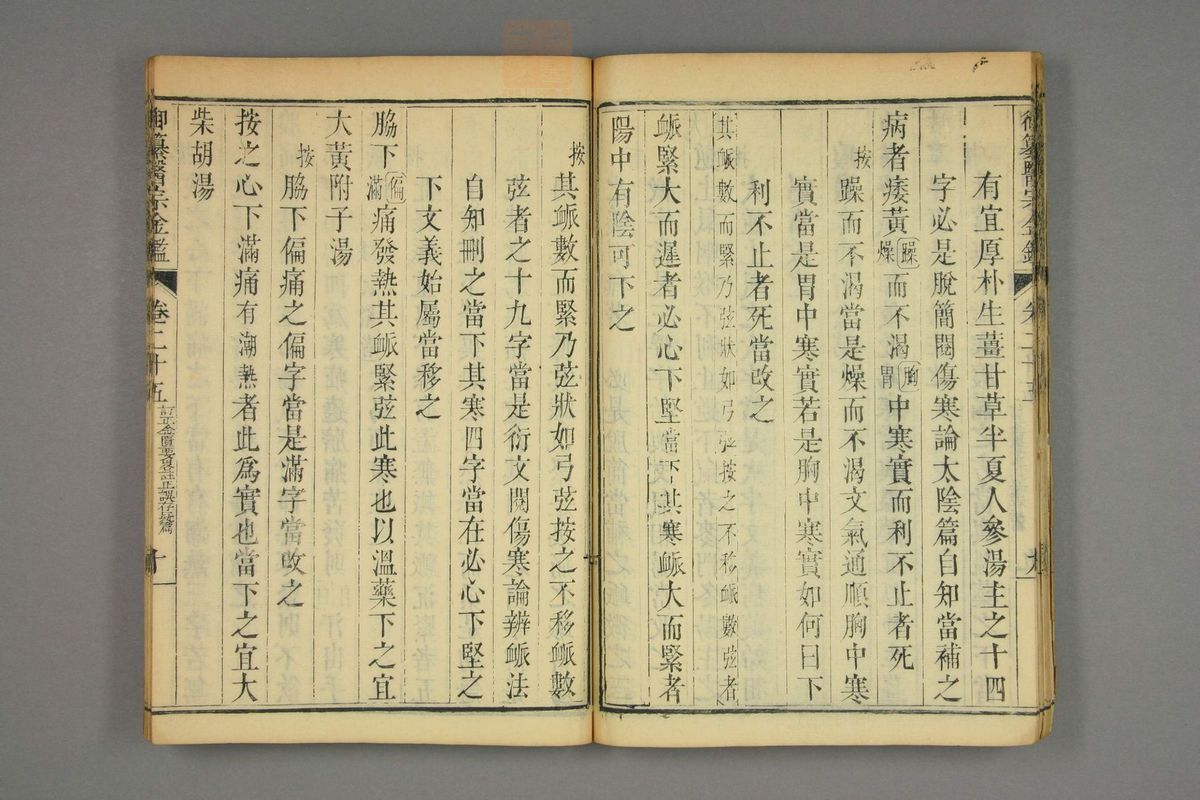 有宜厚朴生薑甘草半夏人參湯主之十四
字必是脫簡閱傷寒論太陰篇自知當補之
病者痿黃躁燥而不渴胸胃中寒實而利不止者死
按躁而不渴當是燥而不渴文氣通順胸中寒
實當是胃中寒實若是胸中寒實如何曰下
利不止者死當改之
其脈數而緊乃弦狀如弓弦按之不移脈數弦者
脈緊大而遲者必心下堅當下其寒脈大而緊者
陽中有陰可下之
按其脈數而緊乃弦狀如弓弦按之不移脈數
弦者之十九字當是衍文閱傷寒論辨脈法
自知刪之當下其寒四字當在必心下堅之
下文義始屬當移之
脇下偏滿痛發熱其脈緊弦此寒也以溫藥下之宜
大黃附子湯
按脇下偏痛之偏字當是滿字當改之
按之心下滿痛有潮熱者此為實也當下之宜大
柴胡湯
御纂醫宗金鑑 卷二十五 訂正金匱要畧註正誤存疑篇 十